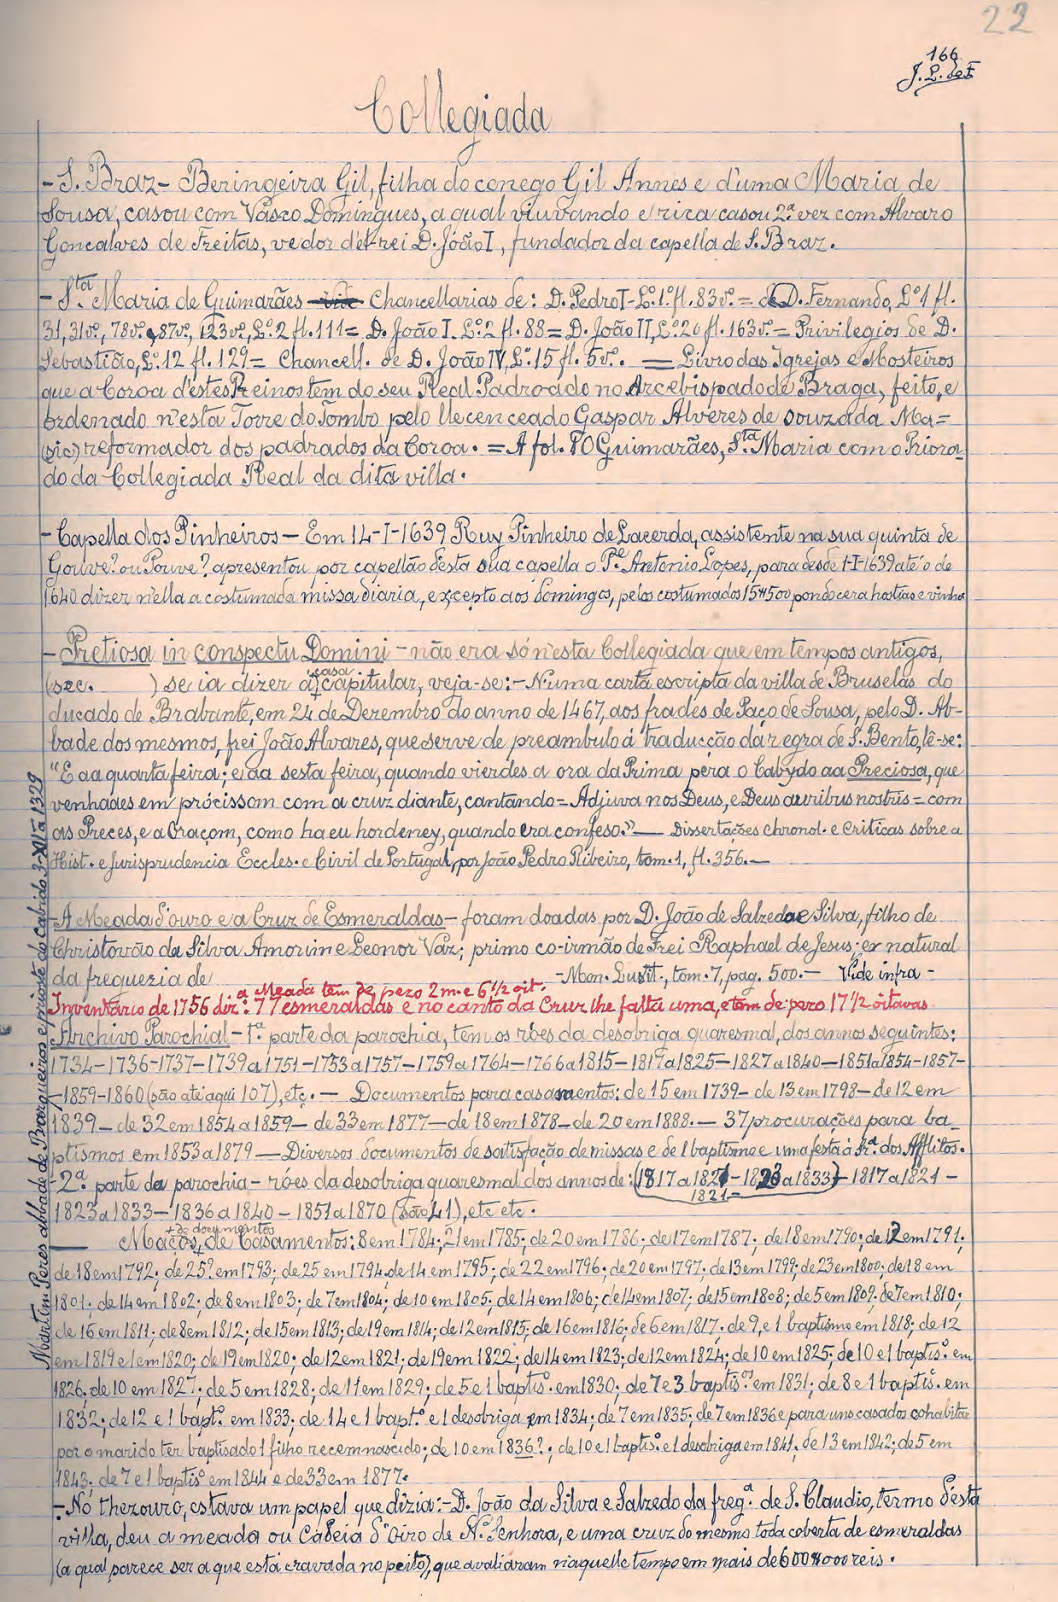 22
166
J. L. de F.
Collegiada
- S. Braz - Beringeira Gil, filha do conego Gil Annes e d'uma Maria de
Sousa, casou com Vasco Domingues, a qual viuvando e rica casou 2.ª vez com Alvaro
Goncalves de Freitas, vedor d'el-rei D. João I, fundador da capella de S. Braz.
- S.ta Maria de Guimarães Chancellarias de: D. Pedro I - L.º 1.º fl. 83 vº. = de D. Fernando, L.º 1 fl.
31, 31 vº., 78 vº. 87 vº., 123 vº., L.º 2 fl. 111 = D. João I. L.º 2 fl. 88 = D. João II, L.º 26 fl. 163 vº. = Privilegios de D.
Sebastião, L.º 12 fl. 129 = Chancell. de D. João IV, L.º 15 fl. 5 vº. = Livro das Igrejas e Mosteiros
que a Coroa d'estes Reinos tem do seu Real Padroado no Arcebispado de Braga, feito, e
ordenado n'esta Torre do Tombo pelo llecenceado Gaspar Alveres de Souzada Ma=
(sic) reformador dos padrados da Coroa. = A fol. 80 Guimarães, S.ta Maria com o Priora_
do da Collegiada Real da dita villa.
- Capella dos Pinheiros - Em 14-I-1639 Ruy Pinheiro de Lacerda, assistente na sua quinta de
Gouve? ou Pouve? apresentou por capellão d'esta sua capella o P.e Antonio Lopes, para desde 1-I-1639 até o de
1640 dizer n'ella a costumada missa diaria, excepto aos domingos, pelos costumados 15$500 pondo cera hostias e vinho
- Pretiosa in conspectu Domini - não era só n'esta Collegiada que em tempos antigos,
(sec. ) se ia dizer á casa capitular, veja-se: - N'uma carta escripta da villa de Bruselas do
ducado de Brabante, em 24 de Dezembro do anno de 1467, aos frades de Paço de Sousa, pelo D. Ab-
bade dos mesmos, frei João Alvares, que serve de preambulo á traducção da regra de S. Bento, lê-se:
"E aa quarta feira; e aa sesta feira, quando vierdes a ora da Prima pera o Cabydo aa Preciosa, que
venhades em prócissom com a cruz diante, cantando = Adjuva nos Deus, e Deus auribus nostris = com
as Preces, e a Oraçom, como ha eu hordeney, quando era confeso." - Dissertações chronol. e Criticas sobre a
Hist. e Jurisprudencia Eccles. e Civil de Portugal, por João Pedro Ribeiro, tom. 1, fl. 356. -
- A Meada d'ouro e a Cruz de Esmeraldas - foram doadas por D. João de Salzedo e Silva, filho de
Christovão da Silva Amorim e Leonor Vaz; primo co-irmão de Frei Raphael de Jesus; er natural
da freguezia de - Mon. Lusit., tom. 7, pag. 500. - Vide infra -
a Meada tem de pezo 2 m. e 6 1/2 oit.
Inventário de 1756 diz: 77 esmeraldas e no canto da Cruz lhe falta uma, e tem de pezo 17 1/2 oitavas
- Archivo Parochial - 1.ª parte da parochia, tem os róes da desobriga quaresmal, dos annos seguintes:
1734-1736-1737-1739 a 1751-1753 a 1757-1759 a 1764-1766 a 1815-1817 a 1825-1827 a 1840-1851 a 1854-1857-
-1859-1860 (são até aqui 107), etc. - Documentos para casamentos: de 15 em 1739 - de 13 em 1798 - de 12 em
1839 - de 32 em 1854 a 1859 - de 33 em 1877 - de 18 em 1878 - de 20 em 1888. - 37 procurações para ba_
ptismos em 1853 a 1879 - Diversos documentos de satisfação de missas e de 1 baptismo e uma festa á Sr.ª dos Afflitos.
2.ª parte da parochia - róes da desobriga quaresmal dos annos de: (1817 a 1821 - 1823 a 1833) - 1817 a 1821 -
1821 -
1823 a 1833 - 1836 a 1840 - 1851 a 1870 (são 41), etc etc.
+ 20 documentos
Maços, de Casamentos: 8 em 1784; 21 em 1785; de 20 em 1786; de 17 em 1787; de 18 em 1790; de 12 em 1791;
de 18 em 1792; de 25? em 1793; de 25 em 1794. de 14 em 1795; de 22 em 1796; de 20 em 1797; de 13 em 1799; de 23 em 1800; de 18 em
1801; de 14 em 1802; de 8 em 1803; de 7 em 1804; de 10 em 1805; de 14 em 1806; de 14 em 1807; de 15 em 1808; de 5 em 1809; de 7 em 1810;
de 16 em 1811; de 8 em 1812; de 15 em 1813; de 19 em 1814; de 12 em 1815; de 16 em 1816; de 6 em 1817. de 9, e 1 baptismo em 1818; de 12
em 1819 e 1 em 1820; de 19 em 1820; de 12 em 1821; de 19 em 1822; de 14 em 1823; de 12 em 1824; de 10 em 1825; de 10 e 1 baptis.º em
1826; de 10 em 1827; de 5 em 1828; de 11 em 1829; de 5 e 1 baptis.º em 1830; de 7 e 3 baptis.os em 1831; de 8 e 1 baptis.º em
1832; de 12 e 1 bapt.º em 1833; de 14 e 1 bapt.º e 1 desobriga em 1834; de 7 em 1835; de 7 em 1836 e para uns casados cohabitar
por o marido ter baptisado 1 filho recemnascido; de 10 em 1836?; de 10 e 1 baptis.º e 1 desobriga em 1841; de 13 em 1842; de 5 em
1843; de 7 e 1 baptis.º em 1844 e de 33 em 1877.
- No thezouro, estava um papel que dizia: - D. João da Silva e Salzedo da freg.ª de S. Claudio, termo d'esta
villa, deu a meada ou Cadeia d'oiro de N.ª Senhora, e uma cruz do mesmo toda coberta de esmeraldas
(a qual parece ser a que está cravada no peito), que avaliaram n'aquelle tempo em mais de 600$000 reis.
Martim Peres abbade de Barqueiros e prioste do Cabido 3-XII-1329